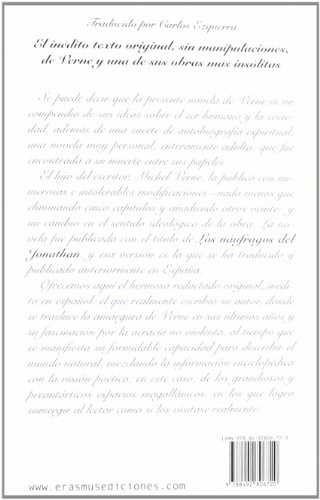 Traducido por Carlos Ezquerra
El inedito texto original, sin manipulaciones,
de Verne y una de sus obras mas insolitas
Se puede decir que la presente novela de Verne es un
compendio de sus ideas sobre el ser humano y la socie-
dad, además de una suerte de autobiografía espiritual,
una novela muy personal, enteramente adulta, que fue
encontrada a su muerte entre sus papeles.
El hijo del escritor, Michel Verne, la publicó con nu-
merosas e intolerables modificaciones –nada menos que
eliminando cinco capítulos y añadiendo otros veinte– y
un cambio en el sentido ideológico de la obra. La no-
vela fue publicada con el titulo de Los náufragos del
Jonathan, y esa versión es la que se ha traducido y
publicado anteriormente en España.
Ofrecemos aquí el hermoso redactado original, inédi-
to en español, el que realmente escribió su autor, donde
se trasluce la amargura de Verne en sus últimos años y
su fascinación por la acracia no violenta, al tiempo que
se manifiesta su formidable capacidad para describir el
mundo natural, mezclando la información enciclopédica
con la visión poética, en este caso, de los grandiosos y
preantárticos espacios magallánicos, en los que logra
sumergir al lector como si los visitase realmente.
ISBN 978 84-92806-72-0
9 788492 806720
www.erasmusediciones.com